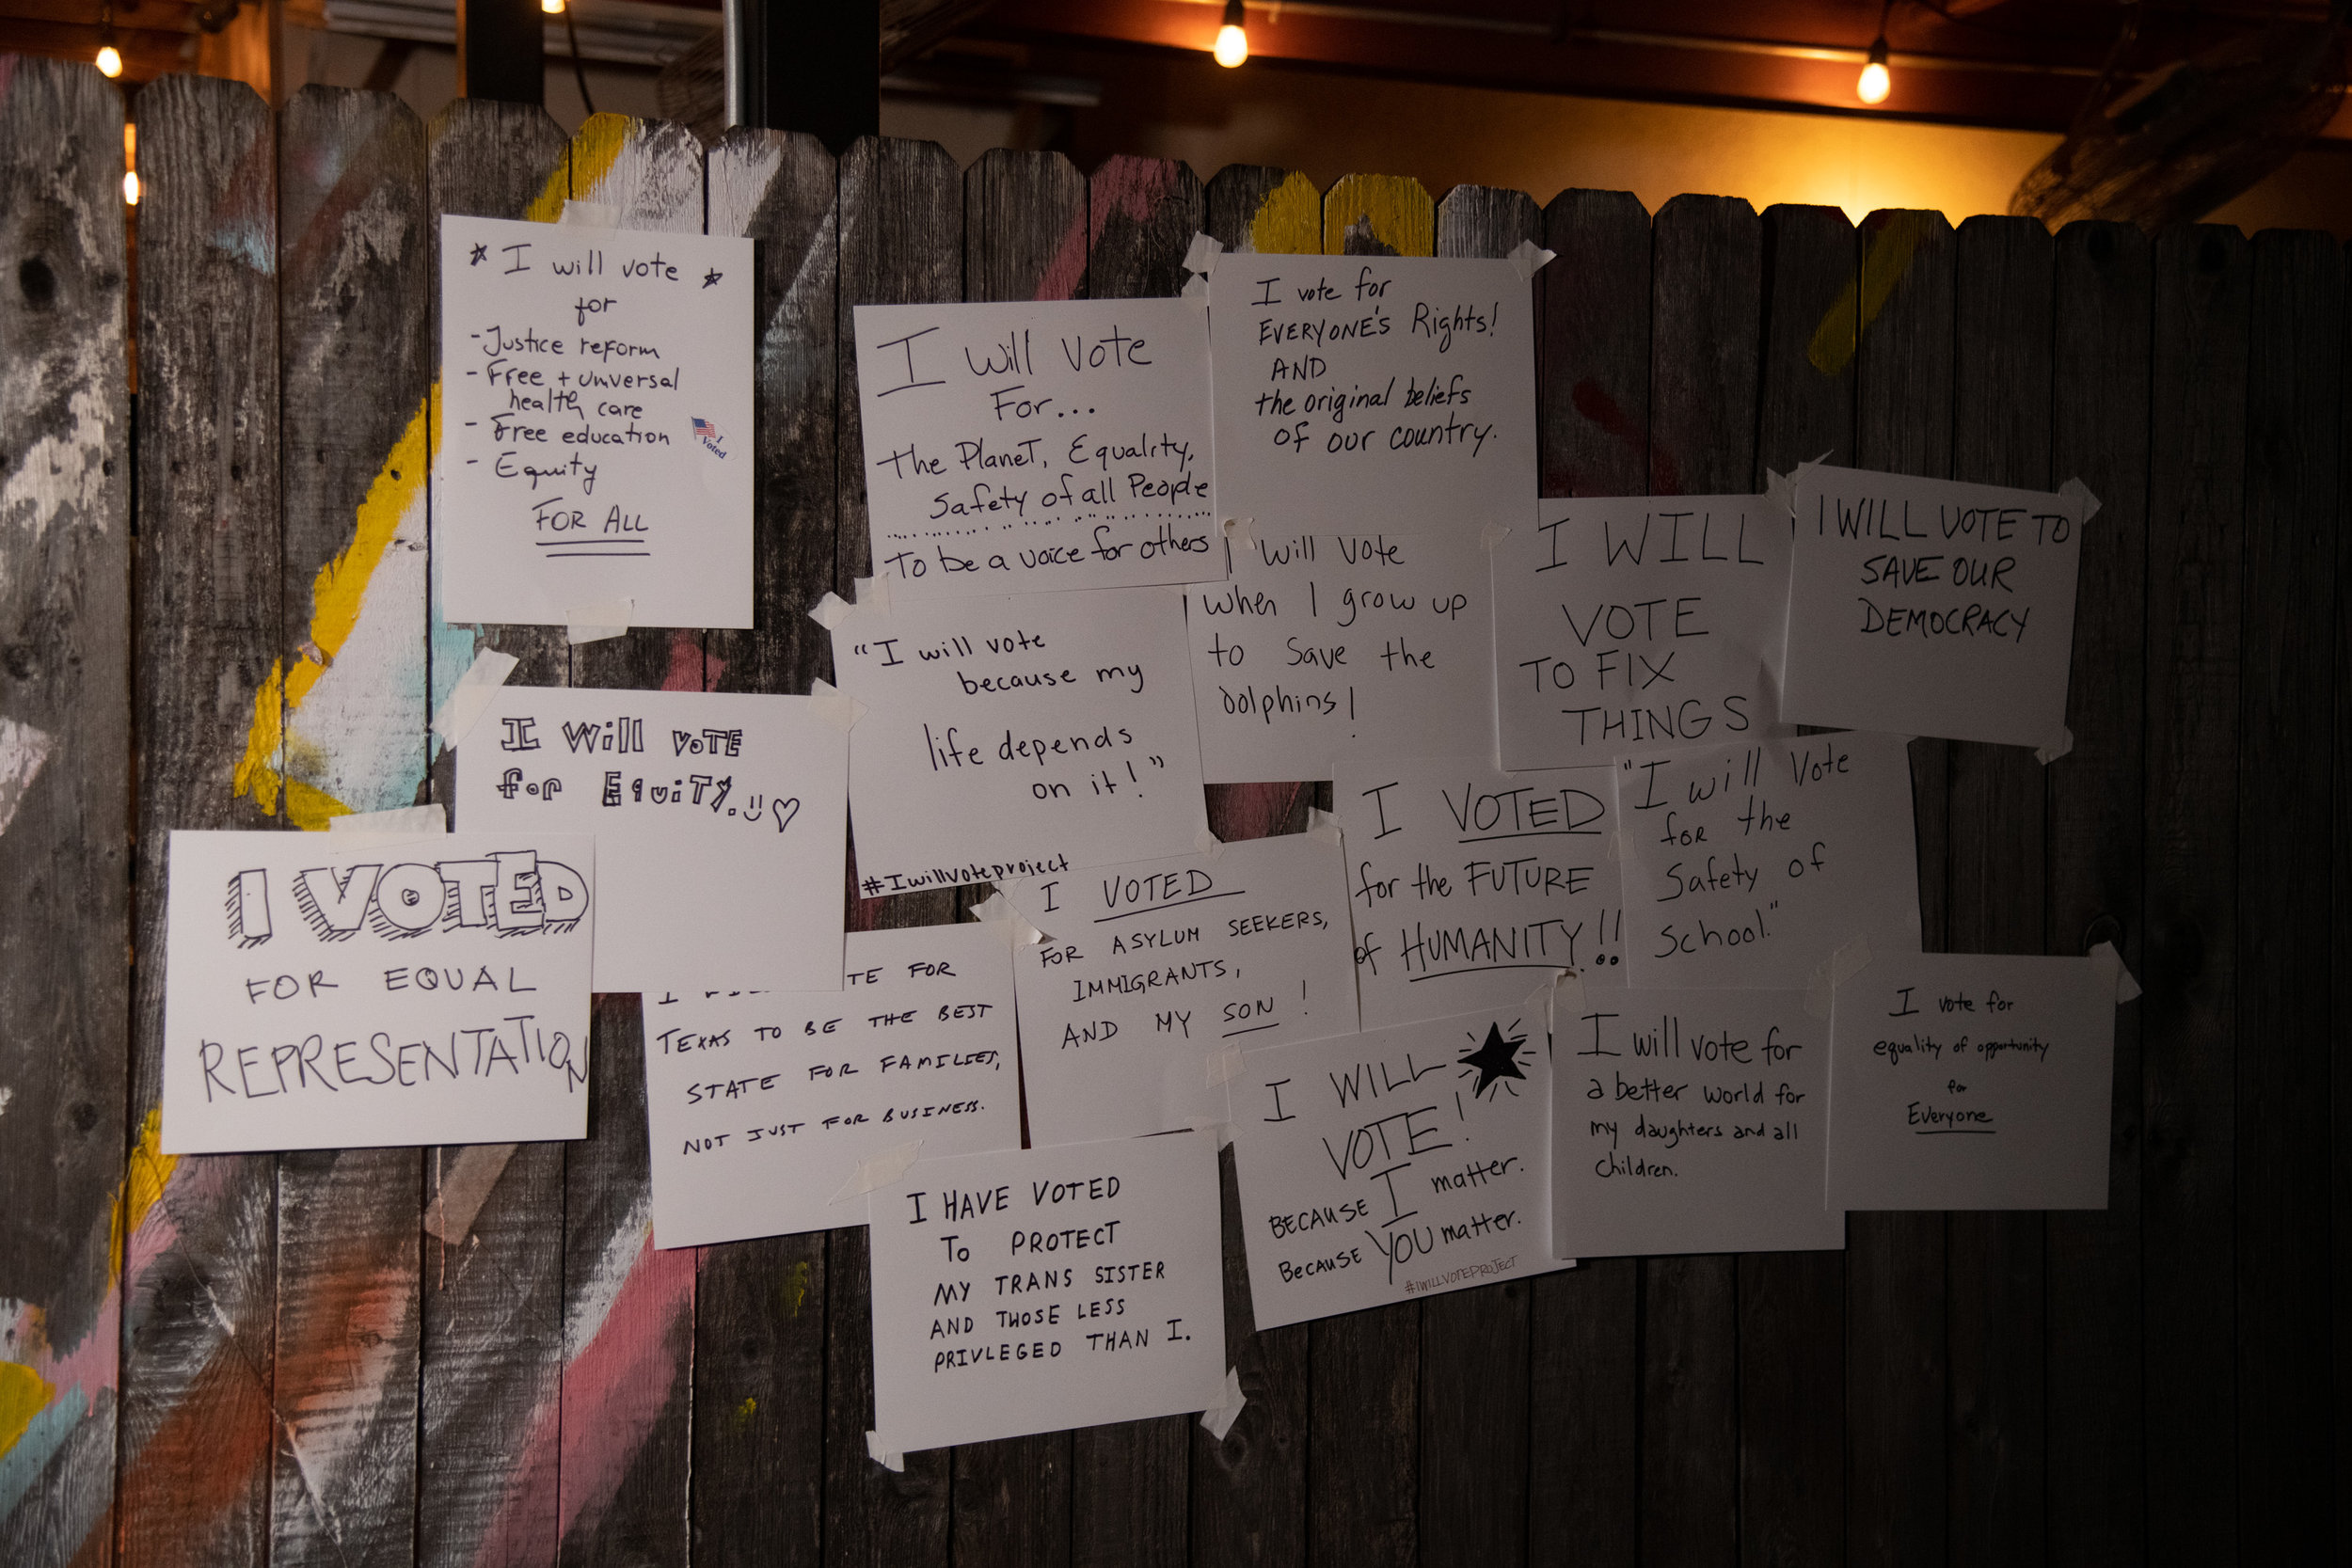 I will vote
for
- Justice reform
- Free + unversal
health care
- Free education
- Equity
FOR ALL
I
Voted
I will Vote
For...
the Planet, Equality,
Safety of all People
To be a voice for others
I vote for
EVERYONE'S Rights!
AND
the original beliefs
of our country.
I will vote
when I grow up
to save the
dolphins!
I WILL
VOTE
TO FIX
THINGS
I WILL VOTE TO
SAVE OUR
DEMOCRACY
"I will vote
because my
life depends
on it!"
#IwillVoteproject
I will VOTE
for EQuiTY.
I VOTED
FOR EQUAL
REPRESENTATION
FOR
TEXAS TO BE THE BEST
STATE FOR FAMILIES,
NOT JUST FOR BUSINESS.
I VOTED
FOR ASYLUM SEEKERS,
IMMIGRANTS,
AND MY SON!
I VOTED
for the FUTURE
of HUMANITY!!
"I will Vote
for the
Safety of
School."
I HAVE VOTED
TO PROTECT
MY TRANS SISTER
AND THOSE LESS
PRIVLEGED THAN I.
I WILL
VOTE!
BECAUSE I matter.
BECAUSE YOU matter.
#IWILLVOTEPROJECT
I will vote for
a better world for
my daughters and all
children.
I vote for
equality of opportunity
for
Everyone